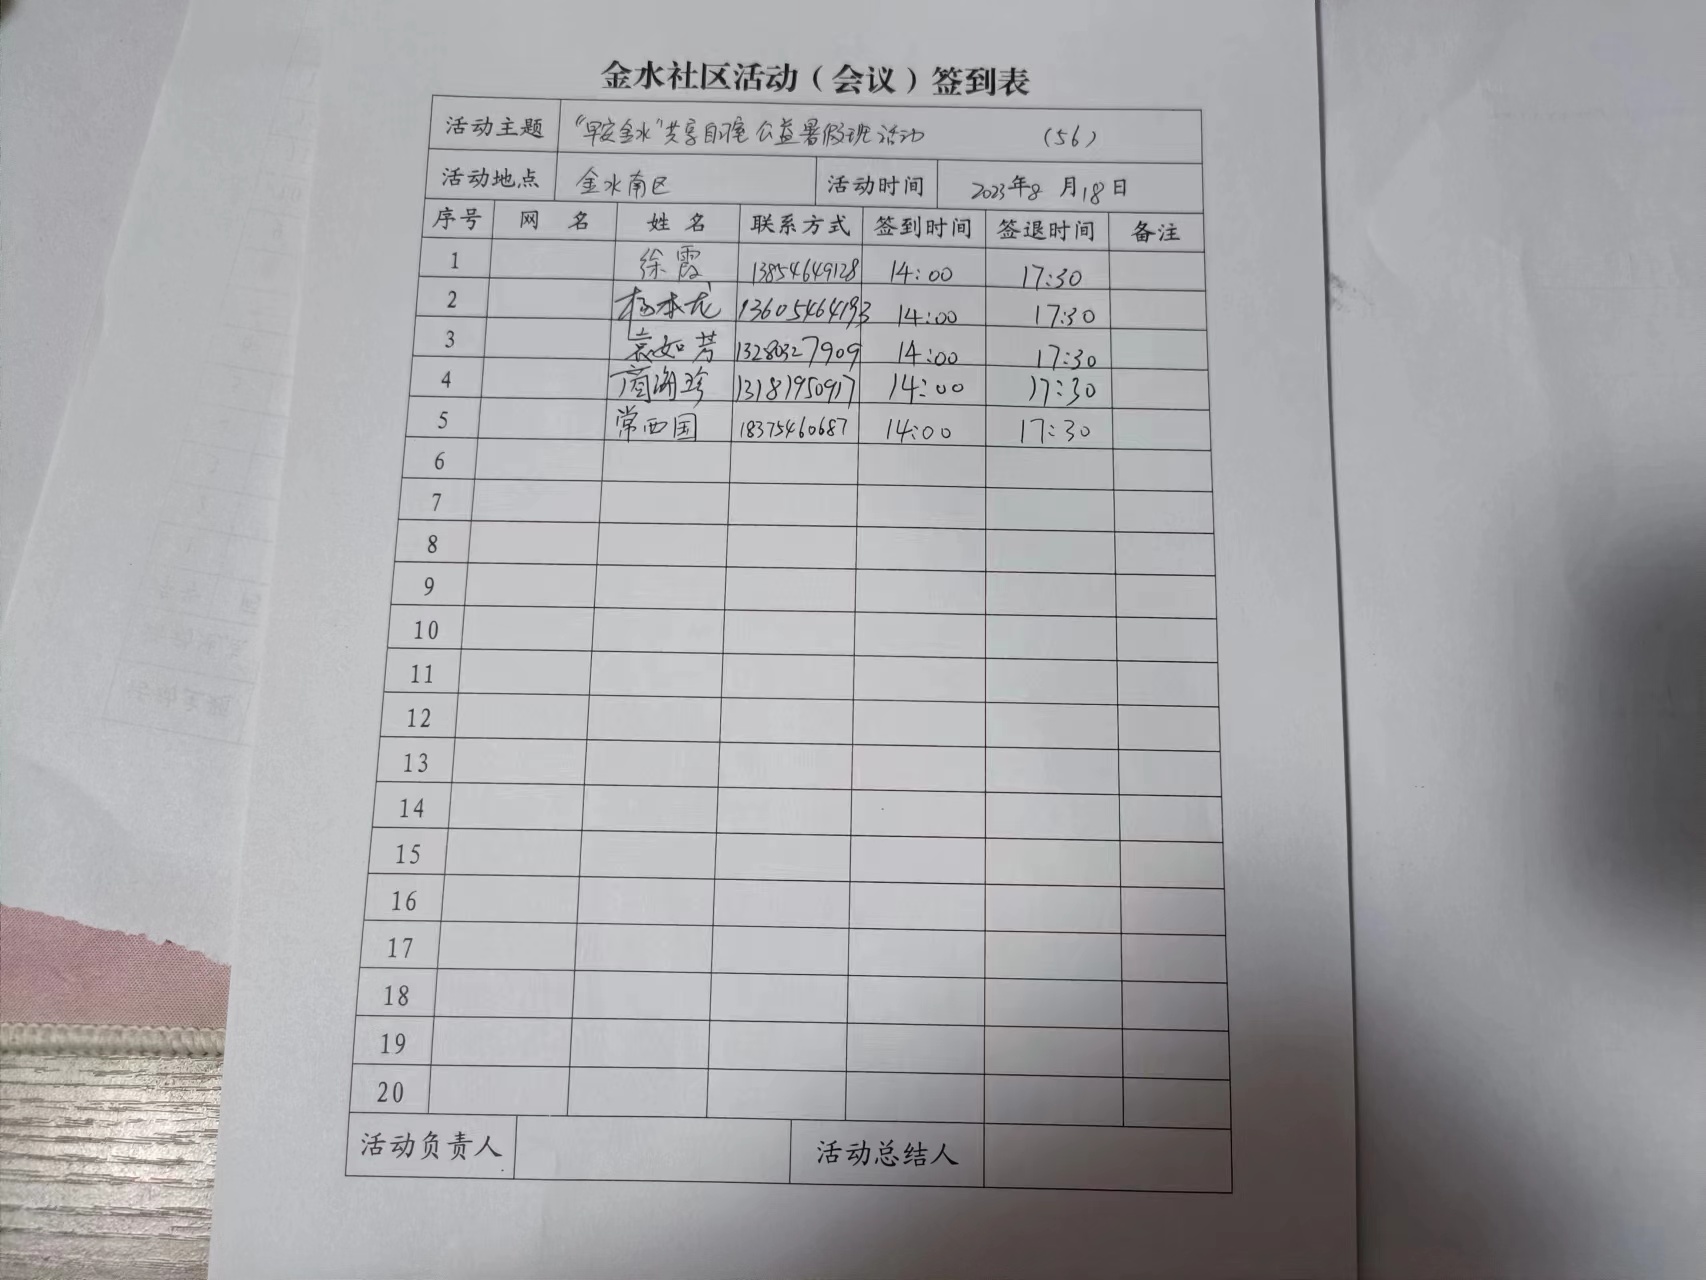 金水社区活动（会议）签到表
活动主题 “早安金水”共享自习室公益暑假班活动 （56）
活动地点 金水南区 活动时间 2023年8月18日
序号 网 名 姓 名 联系方式 签到时间 签退时间 备注
1 徐霞 13854649128 14:00 17:30
2 杨本龙 13605464193 14:00 17:30
3 袁如芳 13280327909 14:00 17:30
4 商海珍 13181950917 14:00 17:30
5 常西国 18375460687 14:00 17:30
6
7
8
9
10
11
12
13
14
15
16
17
18
19
20
活动负责人 活动总结人